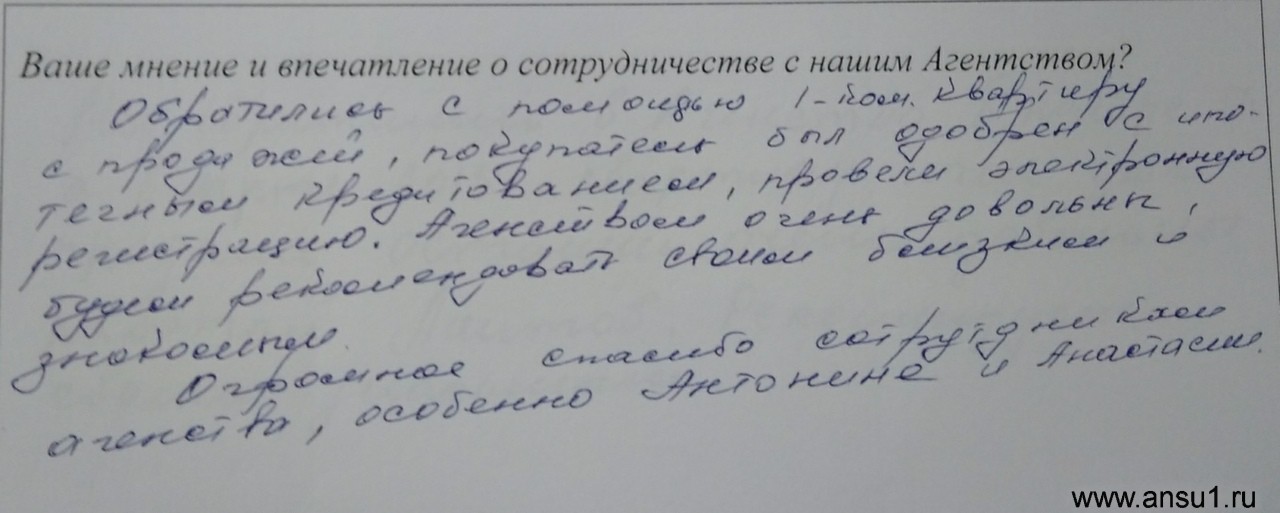 Ваше мнение и впечатление о сотрудничестве с нашим Агентством?
Обратились с помощью 1-ком. квартиру
с продажей, покупатель был одобрен с ипо-
течным кредитованием, провели электронную
регистрацию. Агенством очень довольны,
будем рекомендовать своим близким и
знакомым.
Огромное спасибо сотрутдникам
агенства, особенно Антонине и Анастасии.
www.ansu1.ru